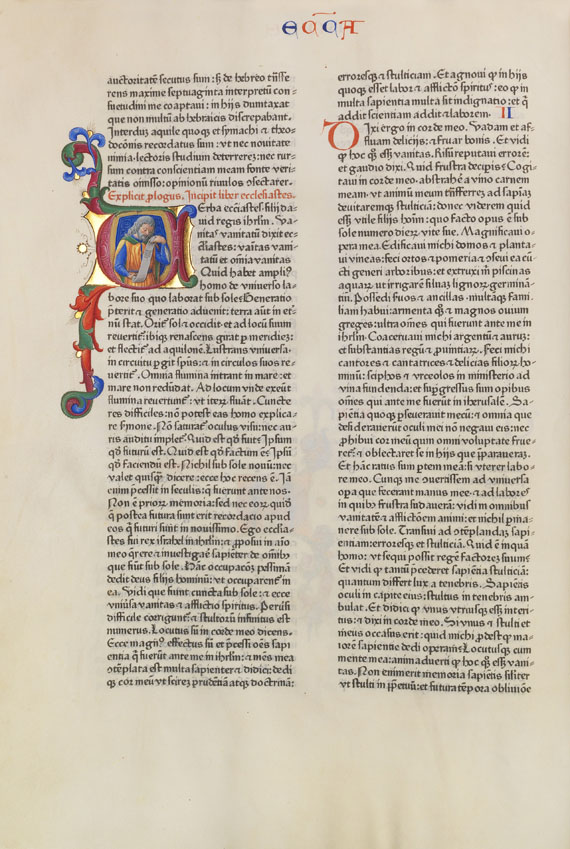 ECCA
auctoritatē secutus sum: ſʒ de hebreo trāſfe⸗
rens maxime septuaginta interpretū con⸗
suetudini me coaptaui: in hijs dumtaxat
que non multū ab hebraicis discrepabant.
Interdū aquile quoqꝫ et symachi ⁊ theo⸗
docōnis recordatus sum: vt nec nouitate
nimia lectoris studium deterrerē: nec rur⸗
sum contra conscientiam meam fonte veri⸗
tatis omisso: opinionū riuulos cōsectarer.
Explicit plogus. Incipit liber ecclesiastes.
VErba ecclastes filij da⸗
uid regis ihrlm. Va⸗
nitas vanitatū dixit ec⸗
clastes: vanitas vani⸗
tatū et omnia vanitas
Quid habet ampliꝰ
homo de vniuerso la⸗
bore suo quo laborat sub sole: Generatio
pterit ⁊ generatio aduenit: terra aūt in et⸗
nū stat. Oritᷣ sol ⁊ occidit: et ad locū suum
reuertitᷣ: ibiqꝫ renascens girat p meridiez:
et flectitᷣ ad aquilonē. Lustrans vniuersa
in circuitu pgit spūs: ⁊ in circulos suos re⸗
uertitᷣ. Omnia flumina intrant in mare: et
mare non redūdat. Ad locum vnde exeūt
flumina reuertuntᷣ: vt iterū fluāt. Cuncte
res difficiles: nō potest eas homo explica⸗
re smone. Nō saturatᷣ oculus visu: nec au⸗
ris auditu impletᷣ. Quid est qd fuit: Ipsum
qd futurū est. Quid est qd factum ē: Ipsū
qd faciendū est. Nichil sub sole nouū: nec
valet quisqꝫ dicere: ecce hoc recens ē. Iā
enim pcessit in seculis: q̄ fuerunt ante nos.
Non ē priorꝝ memoria: sed nec eorꝝ quidē
q̄ postea futura sunt: erit recordacio apud
eos q̄ futuri sunt in nouissimo. Ego ecclia⸗
stes fui rex israhel in ihrlm: ⁊ pposui in aīo
meo q̄rere ⁊ inuestigare sapienter de omībꝰ
que fiūt sub sole. Hāc occupacōꝫ pessimam
dedit deus filijs hominū: vt occuparentᷣ in
ea. Vidi que fiunt cuncta sub sole: ⁊ ecce
vniuersa vanitas ⁊ afflictio spiritus. Peruersi
difficile corriguntᷣ: ⁊ stultorū infinitus est
numerus. Locutus sū in corde meo dicens.
Ecce magnꝰ effectus sū et pcessi oēs sapi
entia q̄ fuerūt ante me in ihrlm: ⁊ mēs mea
cōtēplata est multa sapienter ⁊ didici: dedi
qꝫ cor meū vt scirez prudētiā atqꝫ doctrinā:
erroresqꝫ ⁊ stulticiam. Et agnoui ꝙ in hijs
quoqꝫ esset labor ⁊ afflictō spiritus: eo ꝙ in
multa sapientia multa sit indignatio: et q̄
addit scientiam addit ⁊ laborem. II
DIxi ergo in corde meo. Vadam et af⸗
fluam delicijs: ⁊ fruar bonis. Et vidi
ꝙ hoc qꝫ ess̄ vanitas. Risū reputaui errorē:
et gaudio dixi. Quid frustra decipis: Cogi
taui in corde meo abstrahē a vino carnem
meam: vt animū meum trāsferrez ad sapiāz
deuitaremqꝫ stulticiā: donec viderem quid
ess̄ vtile filijs hoīm: quo facto opus ē sub
sole numero dierꝝ vite sue. Magnificaui o⸗
pera mea. Edificaui michi domos ⁊ planta⸗
ui vineas: feci ortos ⁊ pomeria ⁊ ꝯseui ea cū
cti generi arboribus: et extruxi m̄ piscinas
aquaꝝ: ut irrigarē siluaz lignorꝝ germinā⸗
tiū. Possedi suos ⁊ ancillas: multāqꝫ fami
liam habui: armenta qꝫ ⁊ magnos ouium
greges: ultra omēs qui fuerunt ante me in
ihrlm: Coaceruaui michi argentū ⁊ aurū:
et substantias regū ⁊ puinciaꝝ. Feci michi
cantores ⁊ cantatrices ⁊ delicias filioꝝ ho⸗
minū: sciphos ⁊ vrceolos in ministerio ad
vina fundenda: et supgressus sum opibus
omēs qui ante me fuerūt in iherusalē. Sa⸗
piencia quoqꝫ pseuerauit mecū: ⁊ omnia que
desiderauerūt oculi mei nō negaui eis: nec
phibui cor meū quin omni voluptate frue⸗
retᷣ: ⁊ oblectaret se in hijs que ipparaueraz.
Et hāc ratus sum ptem meā: si vterer labo⸗
re meo. Cunqꝫ me ꝯuertissem ad vniuersa
opa que fecerant manus mee: ⁊ ad labores
in quibꝰ frustra sudauerā: vidi in omnibus
vanitatē ⁊ afflictōem animi: et nichil pma⸗
nere sub sole. Transiui ad cōtēplandaz sapi⸗
entiam: erroresqꝫ et stulticiā. Quid ē inquā
homo: vt sequi possit regē Factorez suum:
Et vidi ꝙ tantū pcederet sapientia stulticiā:
quantum differt lux a tenebris. Sapientis
oculi in capite eius: stultus in tenebris am⸗
bulat. Et didici ꝙ vnus vtriusqꝫ ess̄ interi⸗
tus: ⁊ dixi in corde meo. Si vnus ⁊ stulti et
meus occasus erit: quid michi pdest ꝙ ma⸗
iorē sapientie dedi operam: Locutusqꝫ cum
mente mea: animaduerti ꝙ hoc qꝫ ess̄ vani⸗
tas. Non enim erit memoria sapientis similiter
vt stulti in ppetuū: et futura tēpora obliuiōe